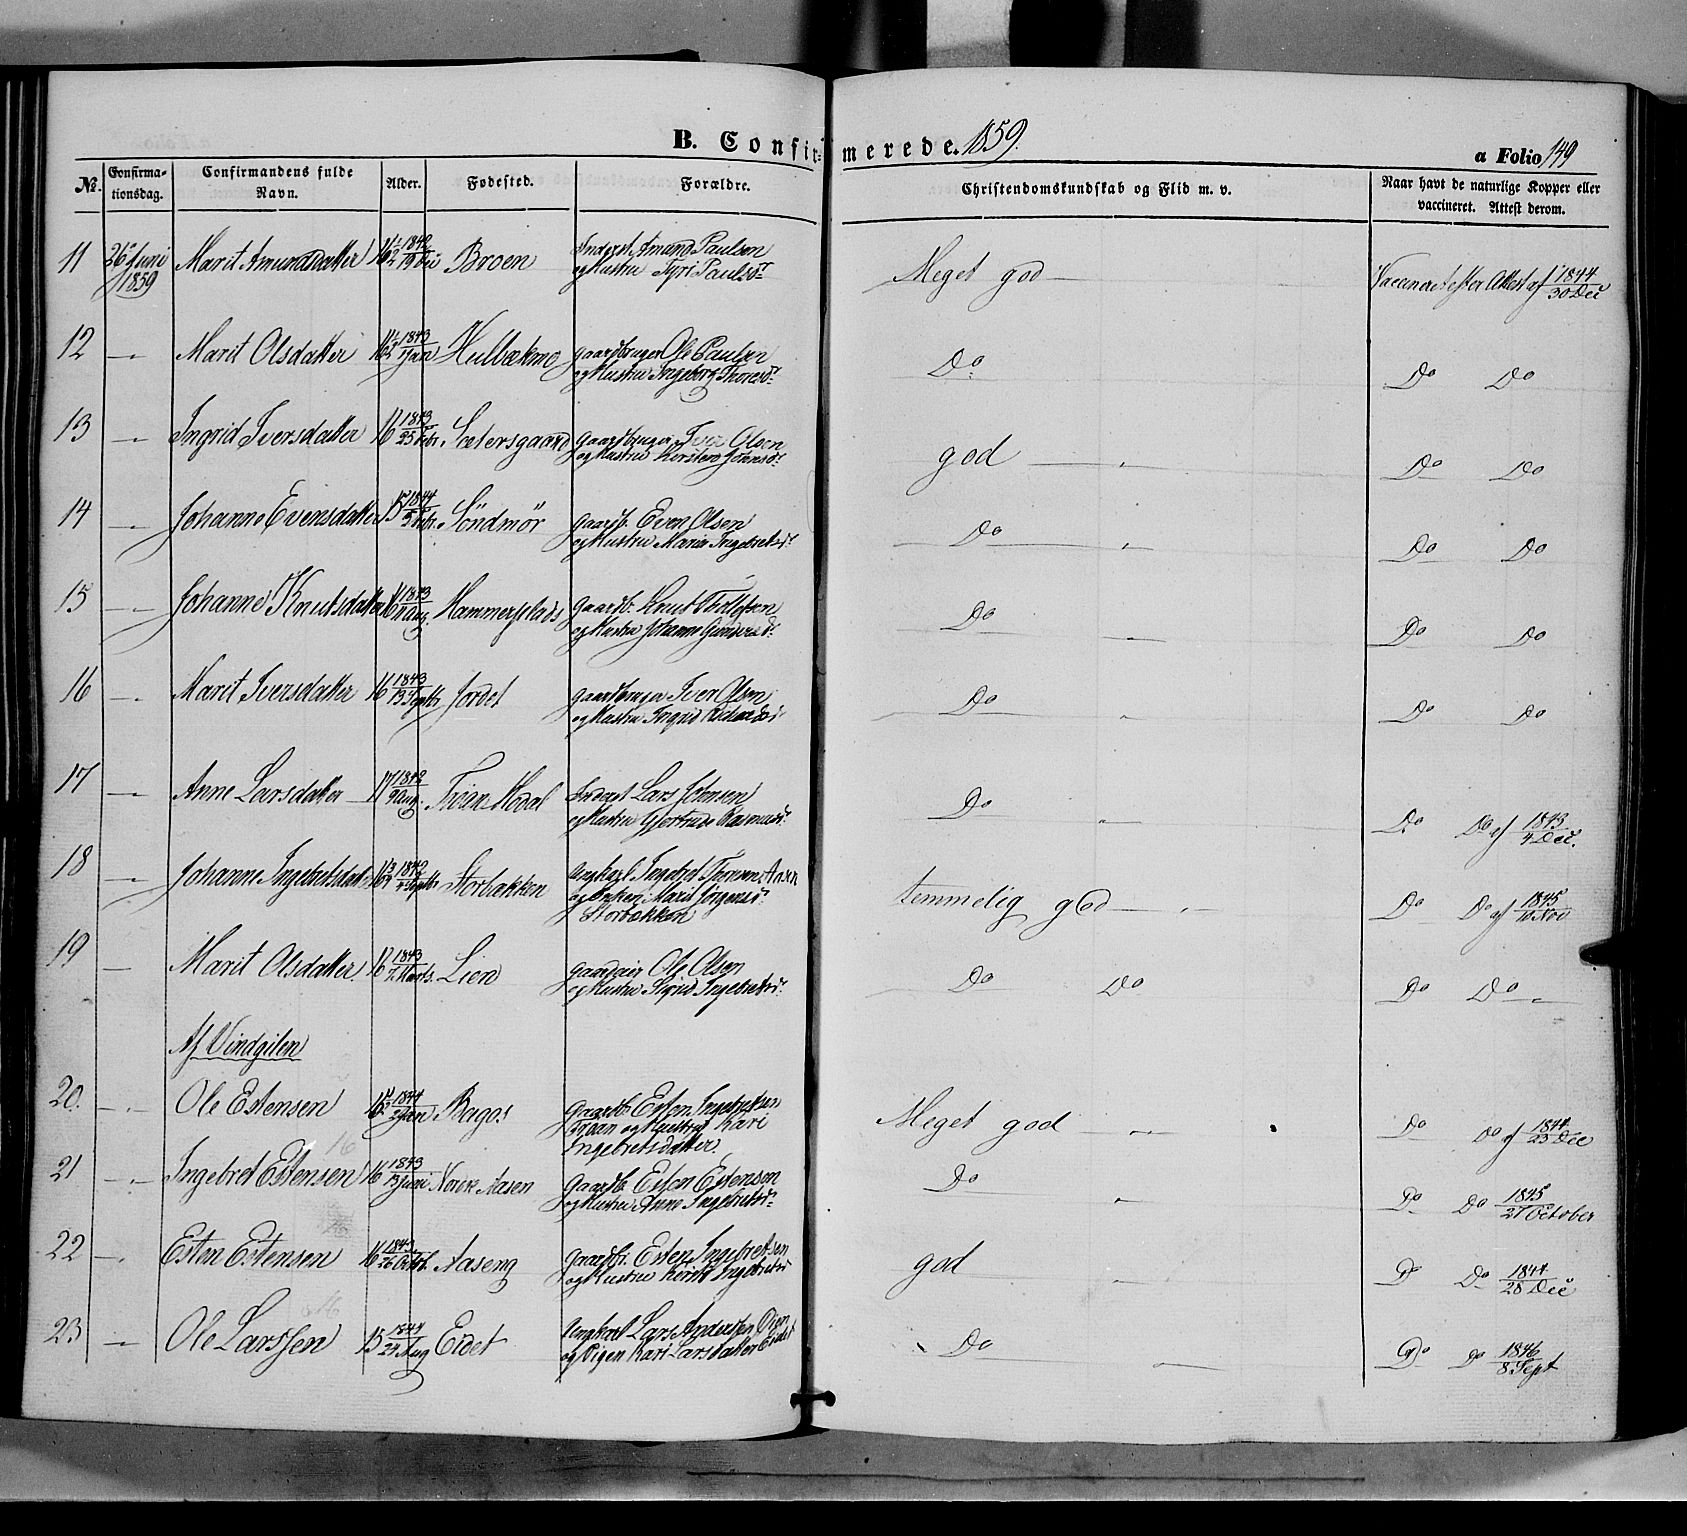 B. Confirmerede. 1859.
a Folio 149
№. Confirmationsdag. Confirmandens fulde Navn. Alder. Fødested. Forældre. Christendomskundskab og Flid m. v. Naar havt de naturlige Kopper eller vaccineret. Attest derom.
11 26 Juni 1859 Marit Amundsdatter 16 1/2 1842 19 Dec Broen Inderst Amund Paulsen
og Hustru Tyri Paulsdr Meget god Vaccineret efter Attest af 1844 30 Dec
12 Marit Olsdatter 16 1/2 1843 Jan Hulbækmo Gaardbruger Ole Paulsen
og Hustru Ingeborg Thoresdr Do Do Do
13 Ingrid Iversdatter 16 1843 25 Sætersgaard Gaardbruger Iver Olsen
og Hustru Kirsten god Do Do
14 Johanne Evensdatter 15 1844 5 Söndmör Gaardb. Even Olsen
og Hustru Maria Ingebretsd. Do Do Do
15 Johanne Knutsdatter 16 1843 Aug. Hammerplads Gaardb. Knut
og Hustru Johanne Do Do Do
16 Marit Iversdatter 16 1843 13 Septbr Jordet Gaardbruger Iver Olsen
og Hustru Ingrid Do Do Do
17 Anne Larsdatter 17 1842 9 Aug. Inderst Lars Johnsen
og Hustru Gjertrud Rasmusd. Do Do Do af 1843 4 Dec.
18 Johanne Ingebretsdatter 16 3/4 1842 Septbr Storbækken Ungkarl Ingebret Thoresen Aasen
og Enken Marit Jörgensd.
Storbækken temmelig god Do Do af 1845 10 Nov
19 Marit Olsdatter 16 1843 7 Marts. Lien Ole Olsen
og Hustru Sigrid Ingebretsd. Do Do Do Do
Af Vindgilen
20. Ole Estensen 15 1/2 1844 2 Jan Bagos Gaardb. Esten Ingebretsen
og Hustru Kari
Ingebretsdatter. Meget god Do Do af 1844 23 Dec
21 Ingebret Estensen 16 1843 13 Juni Aasen Gaardb. Esten Estensen
og Hustru Anne Ingebretsd. Do Do Do 1845 27 October
22 Esten Estensen 16 1843 26 Aaseng Gaardbr. Esten Ingebretsen
og Hustru Ingebretsd god Do Do 1844 28 Dec
23 Ole Larssen 15 1844 24 Aug Eidet Ungkarl Lars Andersen
og Pigen Kari Larsdatter Eidet Do Do Do 1846 8 Sept